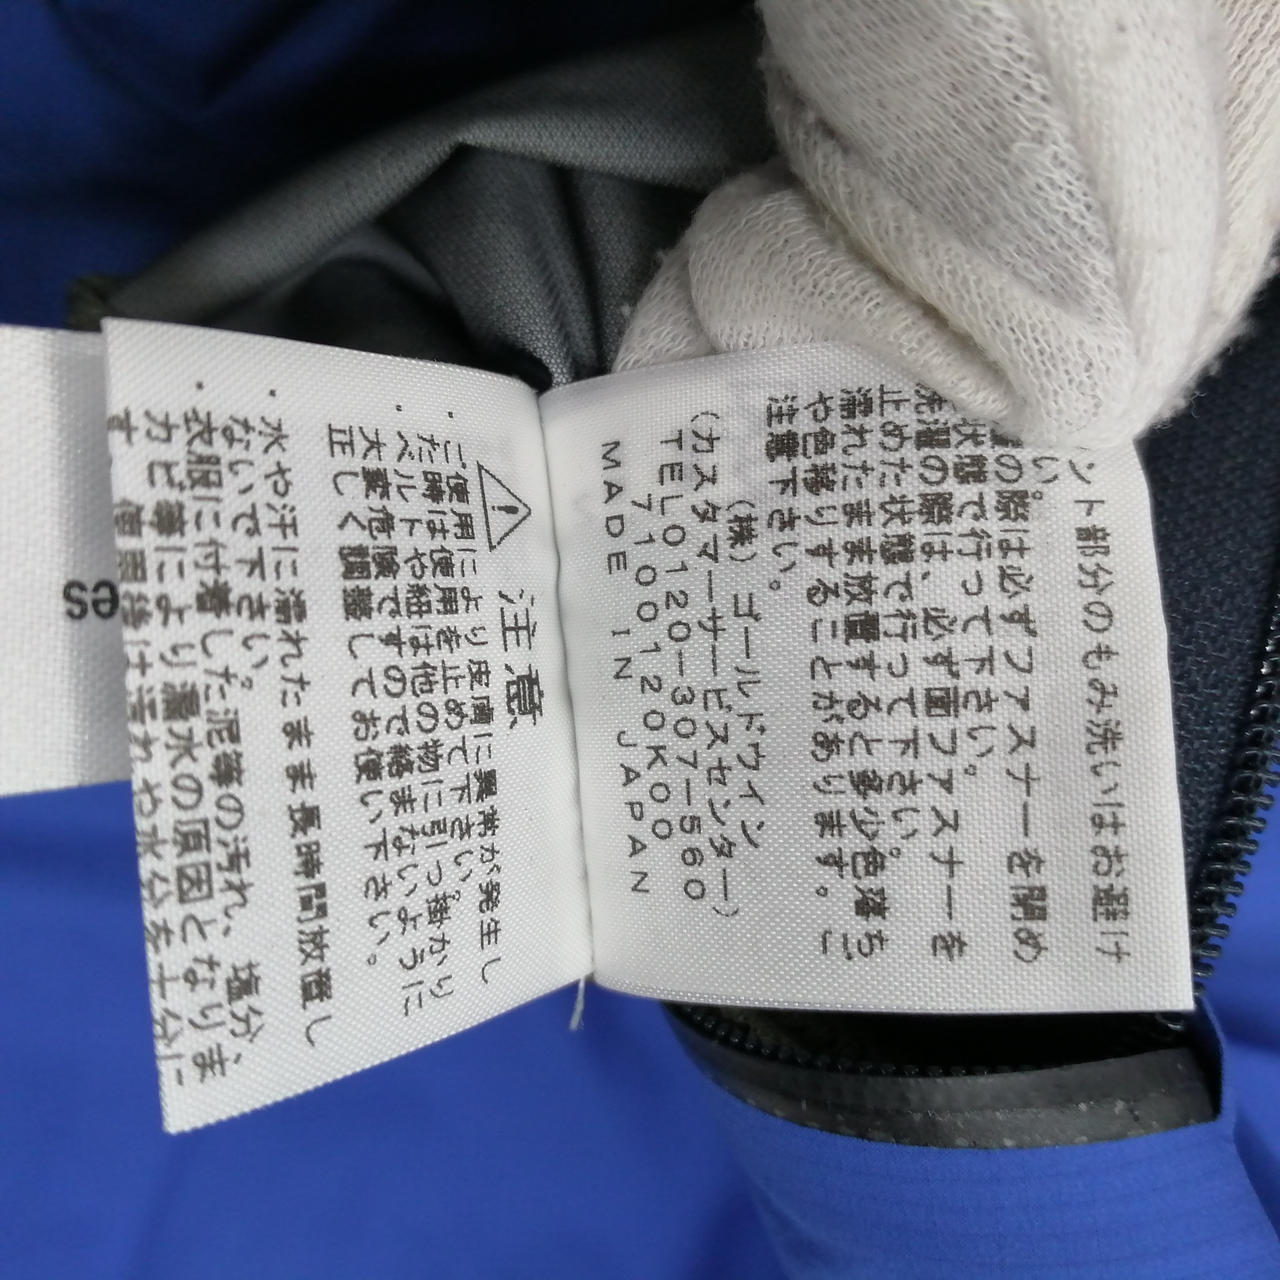 ント部分のもみ洗いはお避け
い。
の際は必ずファスナーを閉め
状態で行って下さい。
洗濯の際は、必ず面ファスナーを
止めた状態で行って下さい。
濡れたまま放置すると多少色落ち
や色移りすることがあります。ご
注意下さい。
(株)ゴールドウイン
(カスタマーサービスセンター)
TEL0120-307-560
7100120K00
MADE IN JAPAN
注意
・ご使用により皮膚に異常が発生し
た時は使用を止めて下さい。
・ベルトや紐は他の物に引っ掛かり
大変危険ですので絡まないように
正しく調整してお使い下さい。
・水や汗に濡れたまま長時間放置し
ないで下さい。
・衣服に付着した泥等の汚れ、塩分、
カビ等により漏水の原因となりま
す
es